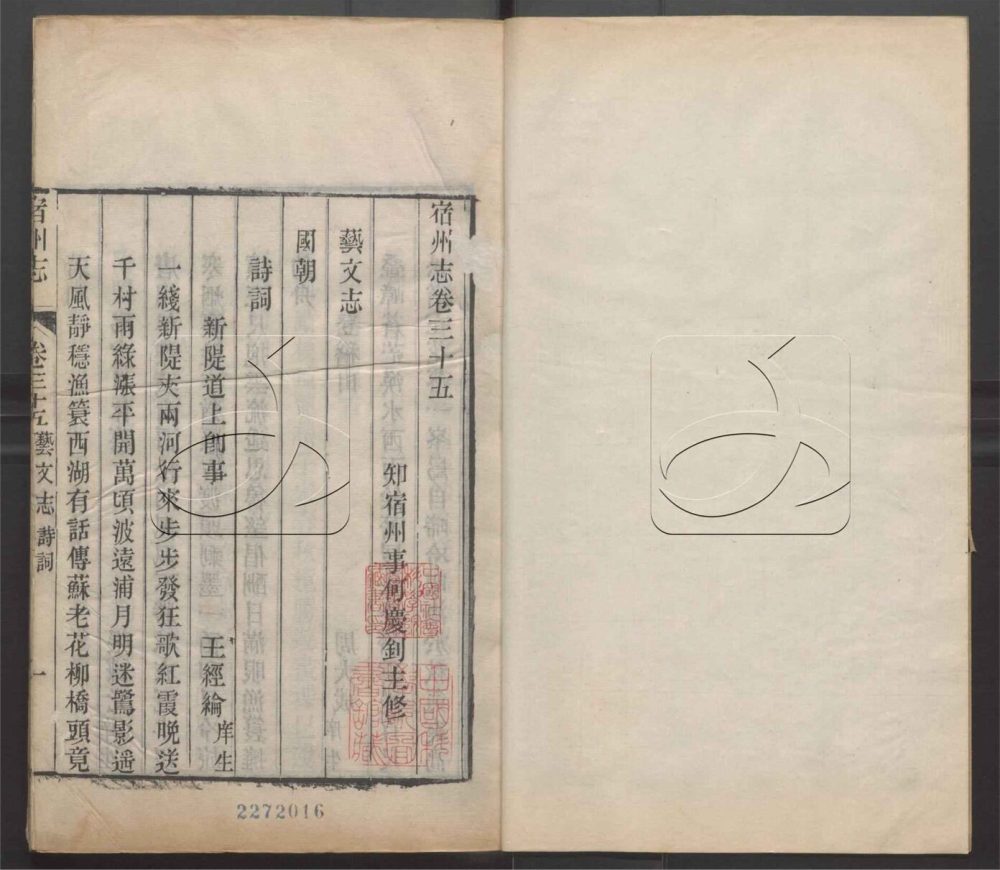 宿州志卷三十五
知宿州事何慶釗主修
藝文志
國朝
詩詞
新隄道上卽事 王經綸 庠生
一綫新隄夾兩河行來步步發狂歌紅霞晚送
千村雨綠漲平開萬頃波遠浦月明迷鷺影遥
天風靜穩漁簑西湖有話傳蘇老花柳橋頭竟
宿州志 卷三十五 藝文志 詩詞 一
2272016